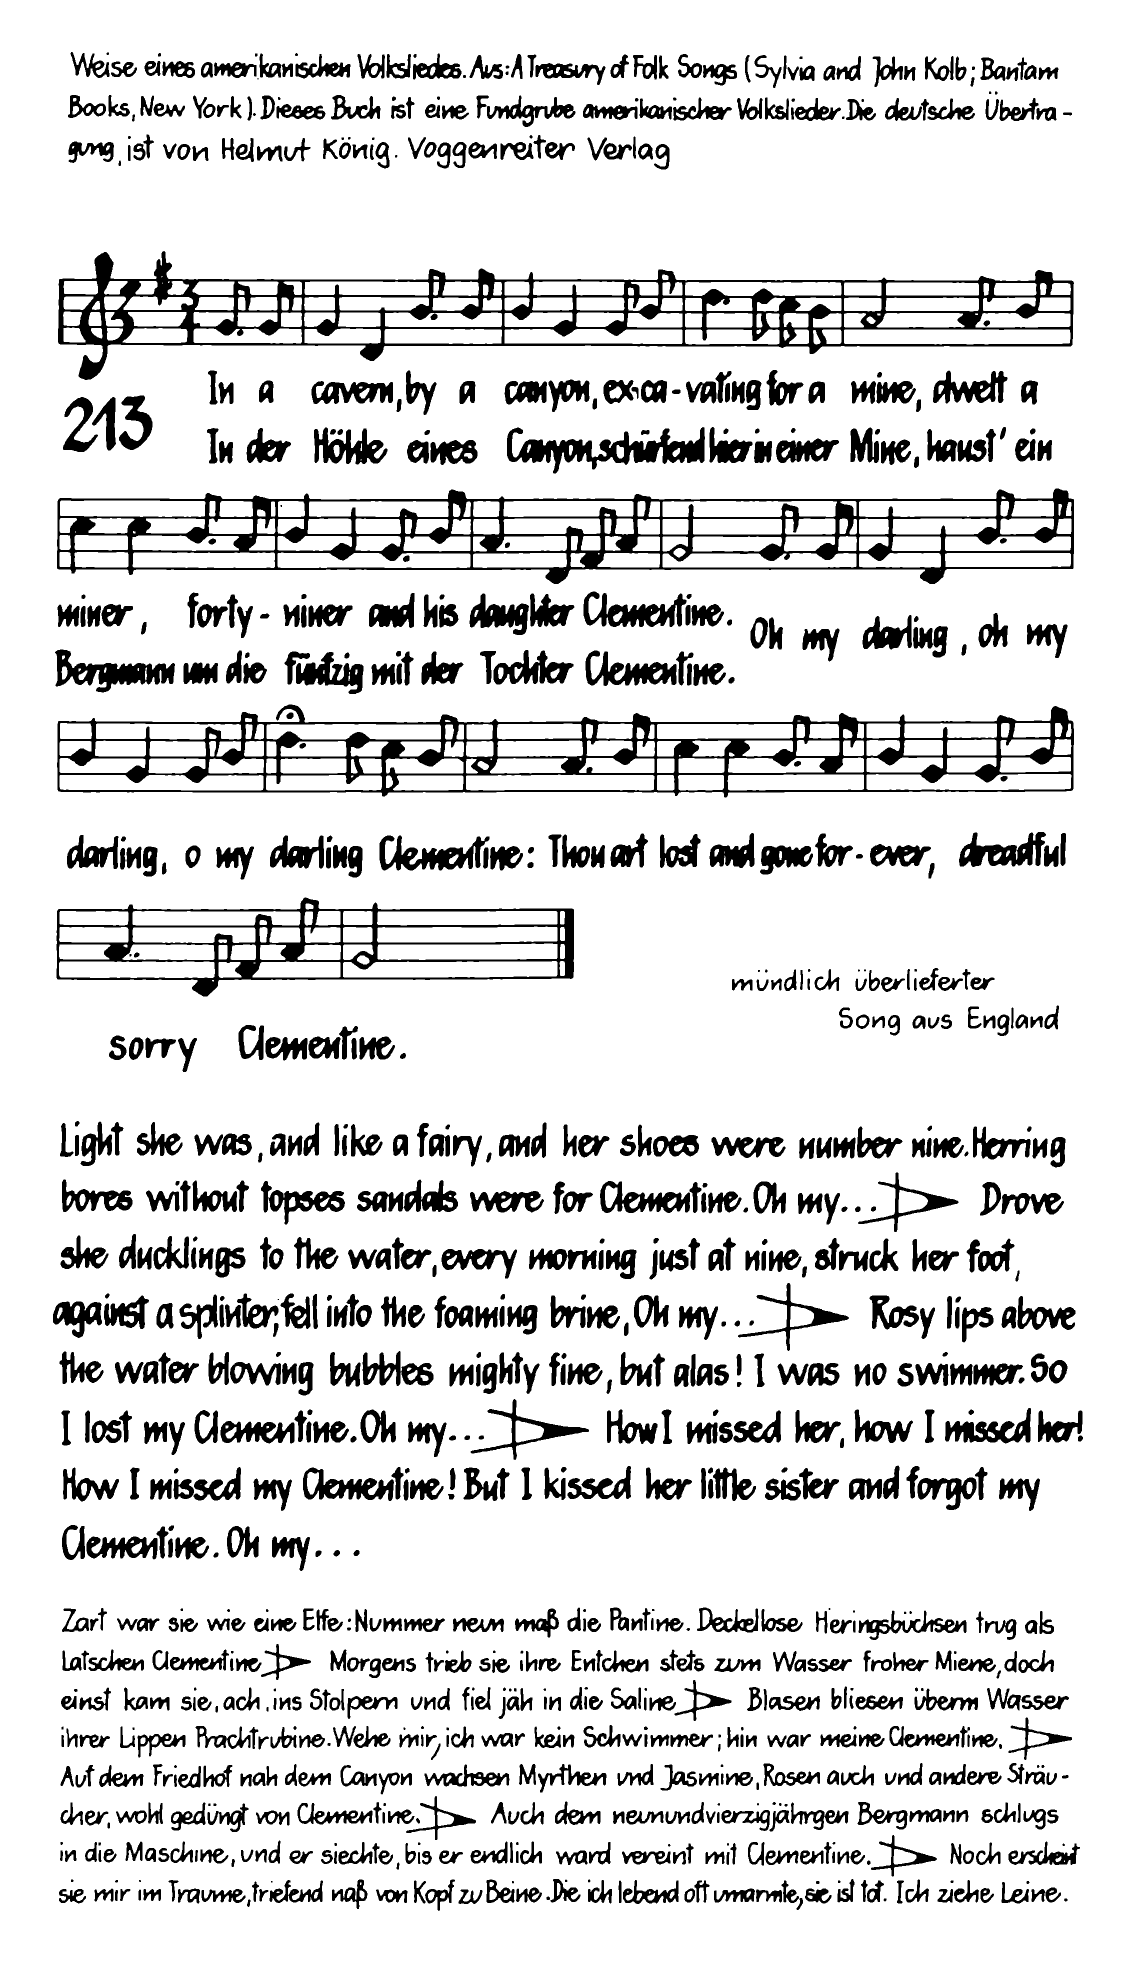 Weise eines amerikanischen Volksliedes. Aus: A Treasury of Folk Songs (Sylvia and John Kolb; Bantam
Books, New York). Dieses Buch ist eine Fundgrube amerikanischer Volkslieder. Die deutsche Übertra-
gung, ist von Helmut König. Voggenreiter Verlag
3/4
213
In a cavern, by a canyon, ex-ca-vating for a mine, dwelt a
In der Höhle eines Canyon, schürfend hier in einer Mine, haust' ein
miner, forty-niner and his daughter Clementine. Oh my darling, oh my
Bergmann um die fünfzig mit der Tochter Clementine.
darling, o my darling Clementine: Thou art lost and gone for-ever, dreadful
sorry Clementine.
mündlich überlieferter
Song aus England
Light she was, and like a fairy, and her shoes were number nine. Herring
bores without topses sandals were for Clementine. Oh my... Drove
she ducklings to the water, every morning just at nine, struck her foot,
against a splinter, fell into the foaming brine, Oh my... Rosy lips above
the water blowing bubbles mighty fine, but alas! I was no swimmer. So
I lost my Clementine. Oh my... How I missed her, how I missed her!
How I missed my Clementine! But I kissed her little sister and forgot my
Clementine. Oh my...
Zart war sie wie eine Elfe: Nummer neun maß die Pantine. Deckellose Heringsbüchsen trug als
Latschen Clementine Morgens trieb sie ihre Entchen stets zum Wasser froher Miene, doch
einst kam sie, ach, ins Stolpern und fiel jäh in die Saline Blasen bliesen überm Wasser
ihrer Lippen Prachtrubine. Wehe mir, ich war kein Schwimmer; hin war meine Clementine.
Auf dem Friedhof nah dem Canyon wachsen Myrthen und Jasmine, Rosen auch und andere Sträu-
cher, wohl gedüngt von Clementine. Auch dem neunundvierzigjährgen Bergmann schlugs
in die Maschine, und er siechte, bis er endlich ward vereint mit Clementine. Noch erscheint
sie mir im Traume, triefend naß von Kopf zu Beine. Die ich lebend oft umarmte, sie ist tot. Ich ziehe Leine.